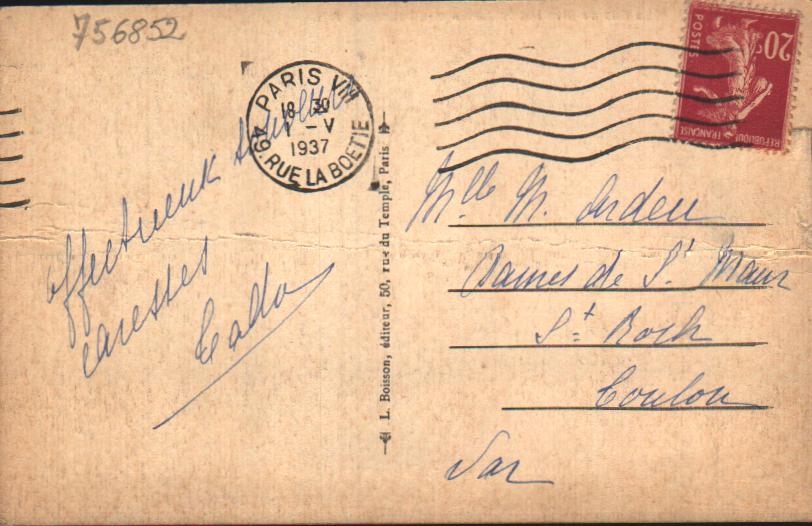 756852
PARIS VIII
18 30
1 - V
1937
49. RUE LA BOETIE
20c
POSTES
REPUBLIQUE FRANÇAISE
Affectueux
caresses
L. Boisson, éditeur, 50, rue du Temple, Paris
Mlle M. Ardeu
Dames de St Maur
St Roch
Toulon
Var